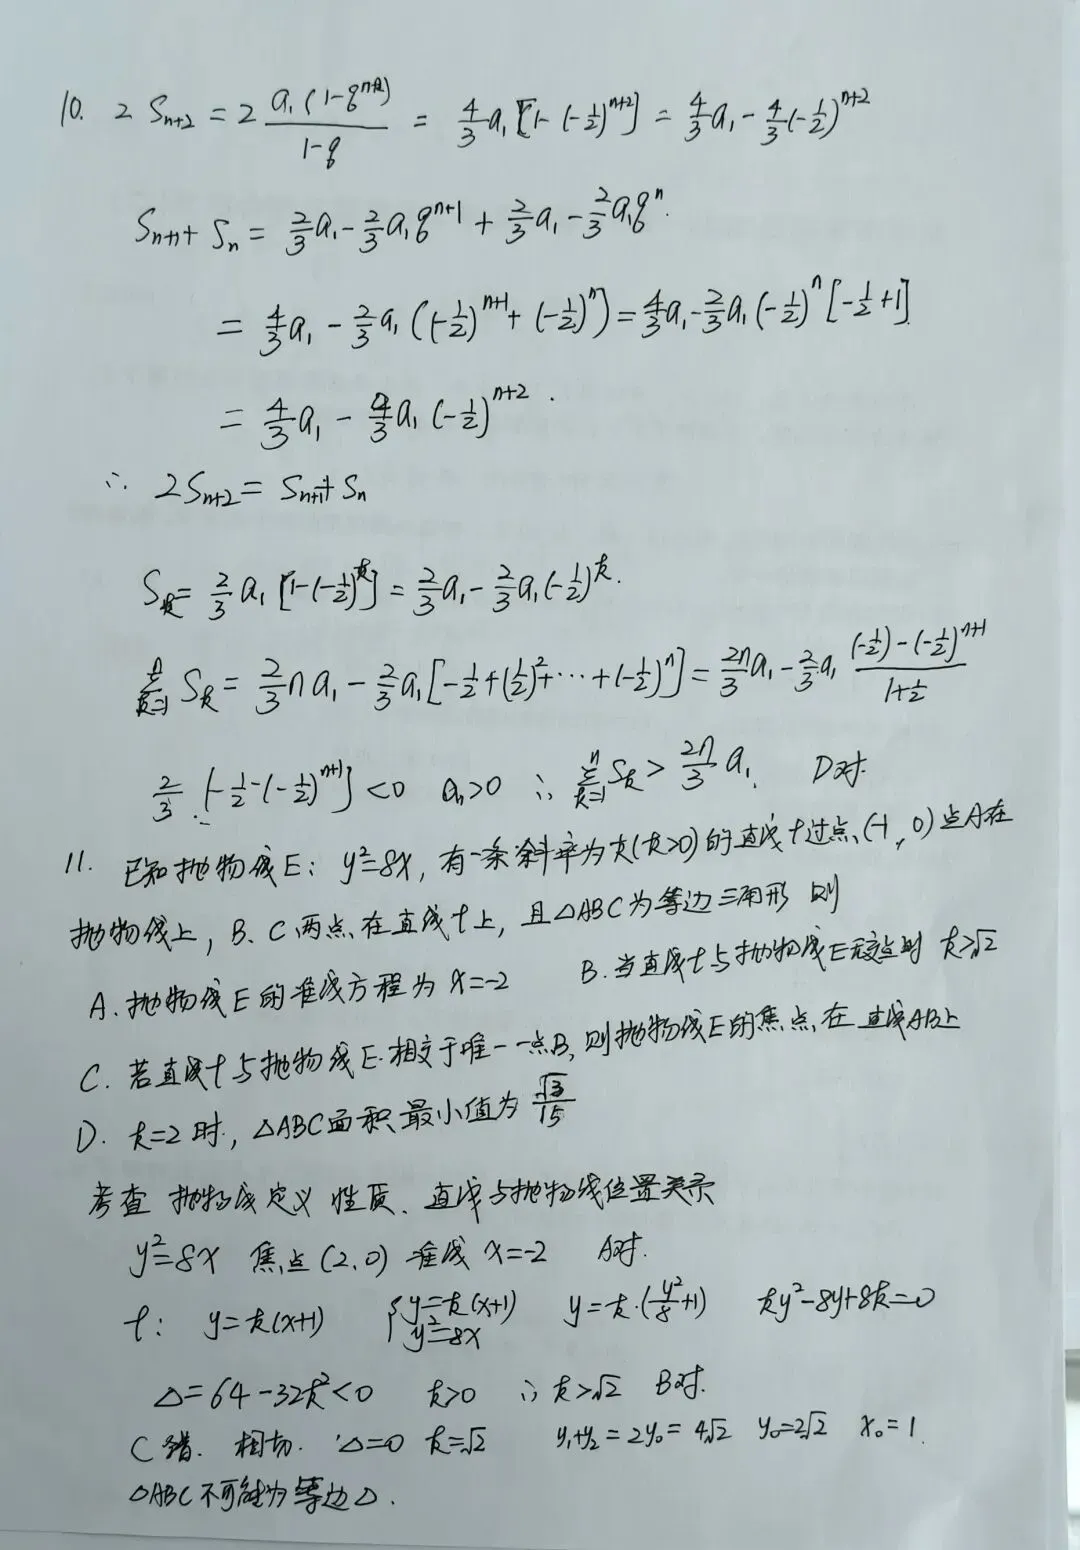 10. 2Sₙ₊₂ = 2 a₁(1-qⁿ⁺²)/(1-q) = 4/3 a₁[1-(-1/2)ⁿ⁺²] = 4/3 a₁ - 4/3(-1/2)ⁿ⁺²
Sₙ₊₁+Sₙ = 2/3 a₁ - 2/3 a₁qⁿ⁺¹ + 2/3 a₁ - 2/3 a₁qⁿ.
= 4/3 a₁ - 2/3 a₁((-1/2)ⁿ⁺¹+(-1/2)ⁿ) = 4/3 a₁ - 2/3 a₁(-1/2)ⁿ[-1/2+1].
= 4/3 a₁ - 4/3 a₁(-1/2)ⁿ⁺².
∴ 2Sₙ₊₂ = Sₙ₊₁+Sₙ
Sₖ = 2/3 a₁[1-(-1/2)ᵏ] = 2/3 a₁ - 2/3 a₁(-1/2)ᵏ.
∑ₖ₌₁ⁿ Sₖ = 2/3 n a₁ - 2/3 a₁[-1/2+(1/2)²+⋯+(-1/2)ⁿ] = 2n/3 a₁ - 2/3 a₁ ((-1/2)-(-1/2)ⁿ⁺¹)/(1+1/2)
2/3·[-1/2-(-1/2)ⁿ⁺¹]<0 aₙ>0 ∴ ∑ₖ₌₁ⁿ Sₖ > 2n/3 a₁. D对.
11. 已知抛物线E: y²=8x, 有一条斜率为k(k>0)的直线l过点(-1,0)点A在
抛物线上, B、C两点在直线l上, 且△ABC为等边三角形 则
A. 抛物线E的准线方程为x=-2 B. 当直线l与抛物线E无交点时 k>√2
C. 若直线l与抛物线E相交于唯一一点B, 则抛物线E的焦点在直线AB上
D. k=2时, △ABC面积最小值为√3/15
考查 抛物线定义 性质、直线与抛物线位置关系
y²=8x 焦点(2,0) 准线x=-2 A对.
l: y=k(x+1) {y=k(x+1) y²=8x y=k·(y²/8+1) ky²-8y+8k=0
△=64-32k²<0 k>0 ∴ k>√2 B对.
C错. 相切. △=0 k=√2 y₁+y₂=2y₀=4√2 y₀=2√2 x₀=1.
△ABC不可能为等边△.